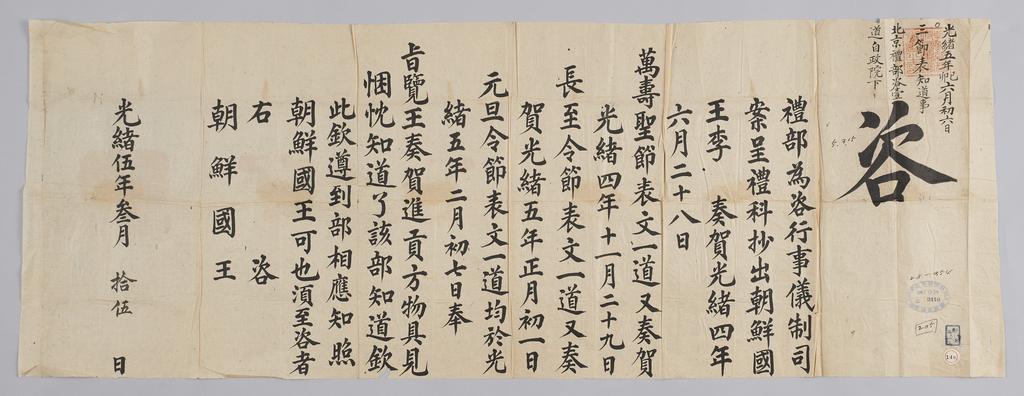 光緒五年己卯六月初六日
三節表知道事
北京禮部咨壹
道自政院下
咨
禮部為咨行事儀制司
案呈禮科抄出朝鮮國
王李 奏賀光緒四年
六月二十八日
萬壽聖節表文一道又奏賀
光緒四年十一月二十九日
長至令節表文一道又奏
賀光緒五年正月初一日
元旦令節表文一道均於光
緒五年二月初七日奉
旨覽王奏賀進貢方物具見
悃忱知道了該部知道欽
此欽遵到部相應知照
朝鮮國王可也須至咨者
右 咨
朝鮮國王
光緒伍年叁月 拾伍 日